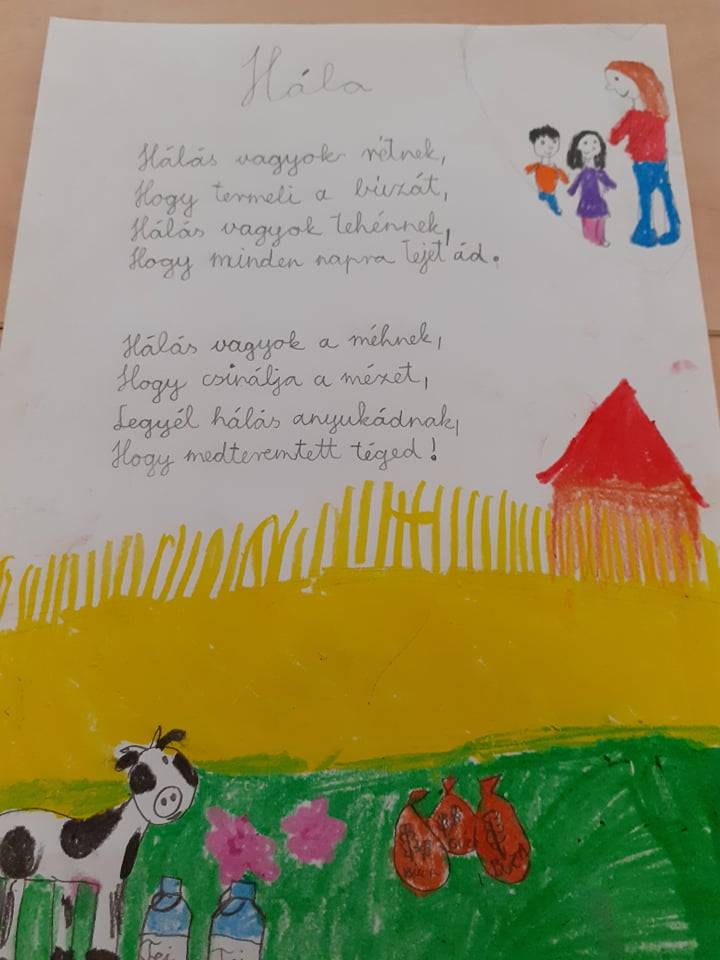 Hála
Hálás vagyok rétnek,
Hogy termeli a búzát,
Hálás vagyok tehénnek,
Hogy minden napra tejet ád.
Hálás vagyok a méhnek,
Hogy csinálja a mézet,
Legyél hálás anyukádnak,
Hogy medteremtett téged!
Tej
Tej